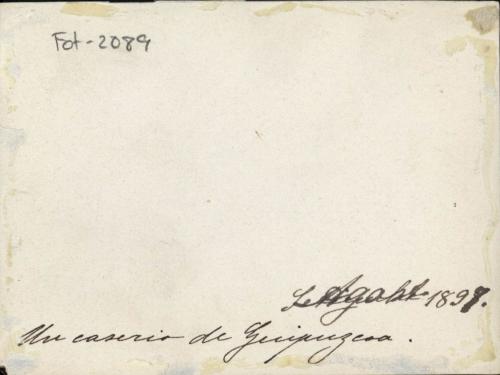 Fot-2089
1897.
Un caserio de Guipuzcoa.